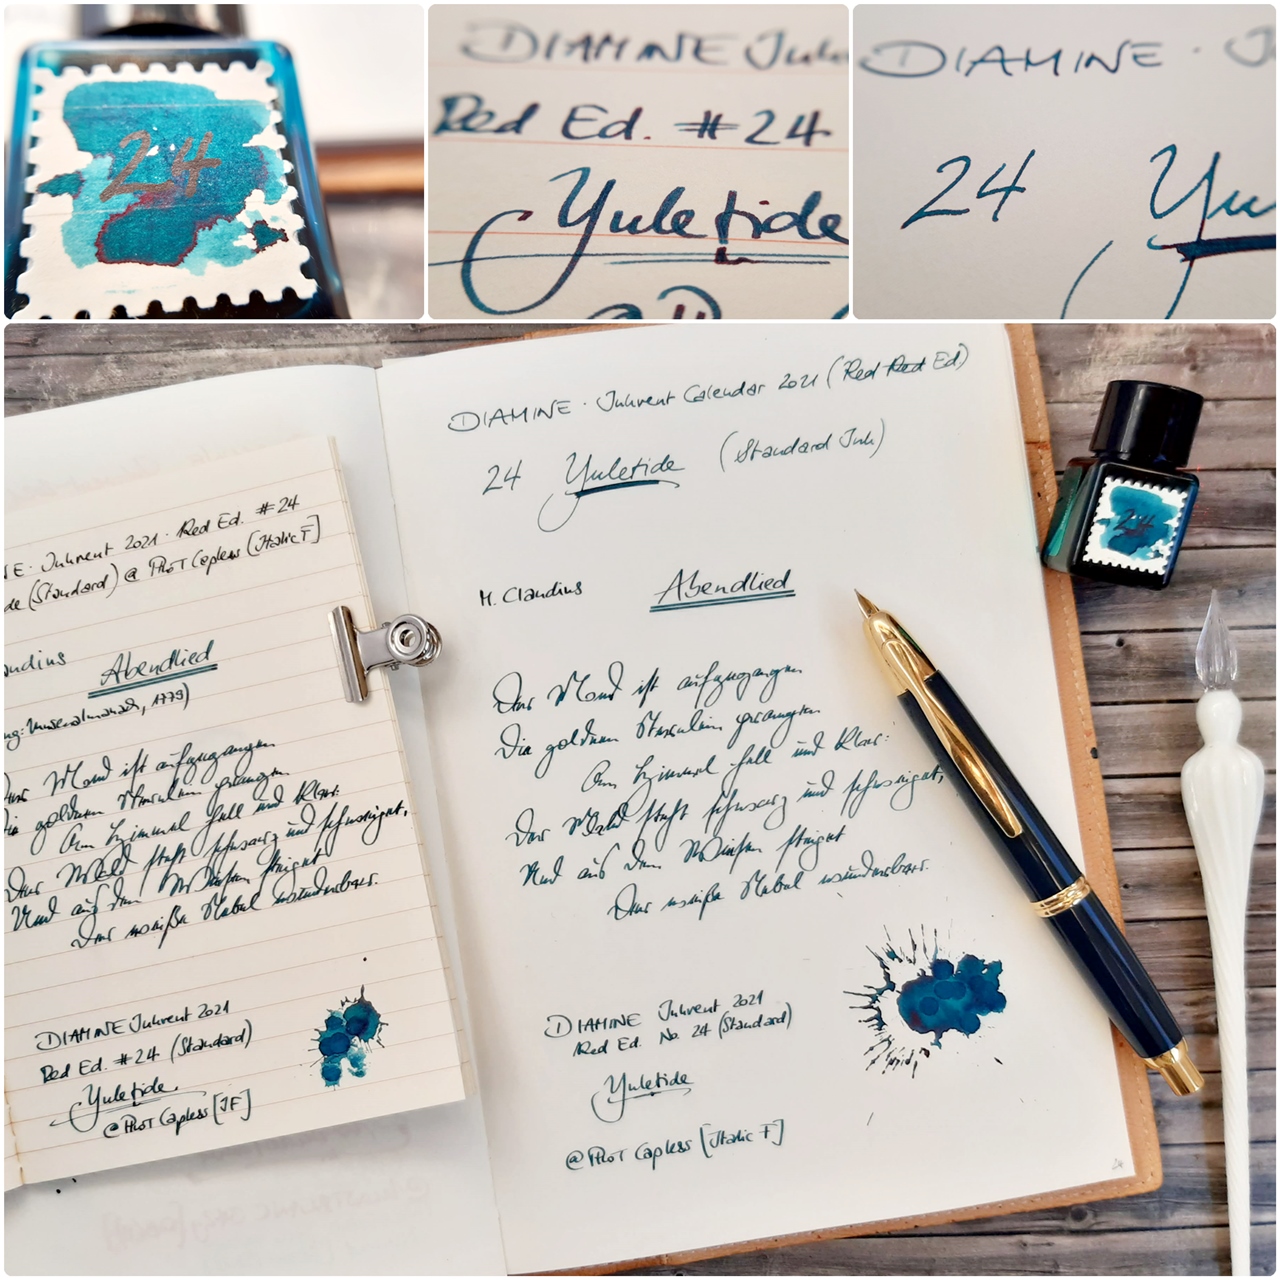 24
DIAMINE Ink
Red Ed. #24
Yuletide
DIAMINE · I
24 Yu
NE · Inkvent 2021 · Red Ed. #24
de (Standard) @ Pilot Capless [Italic F]
audius Abendlied
ng: Musenalmanach, 1779)
Der Mond ist aufgegangen
Die goldnen Sternlein prangen
Am Himmel hell und klar:
Der Wald steht schwarz und schweiget,
Und aus den Wiesen steiget
Der weiße Nebel wunderbar.
DIAMINE Inkvent 2021
Red Ed. #24 (Standard)
Yuletide
@ Pilot Capless [IF]
DIAMINE · Inkvent Calendar 2021 (Red Red Ed)
24 Yuletide (Standard Ink)
M. Claudius Abendlied
Der Mond ist aufgegangen
Die goldnen Sternlein prangen
Am Himmel hell und klar:
Der Wald steht schwarz und schweiget,
Und aus den Wiesen steiget
Der weiße Nebel wunderbar.
DIAMINE Inkvent 2021
Red Ed. No. 24 (Standard)
Yuletide
@ Pilot Capless [Italic F]
24